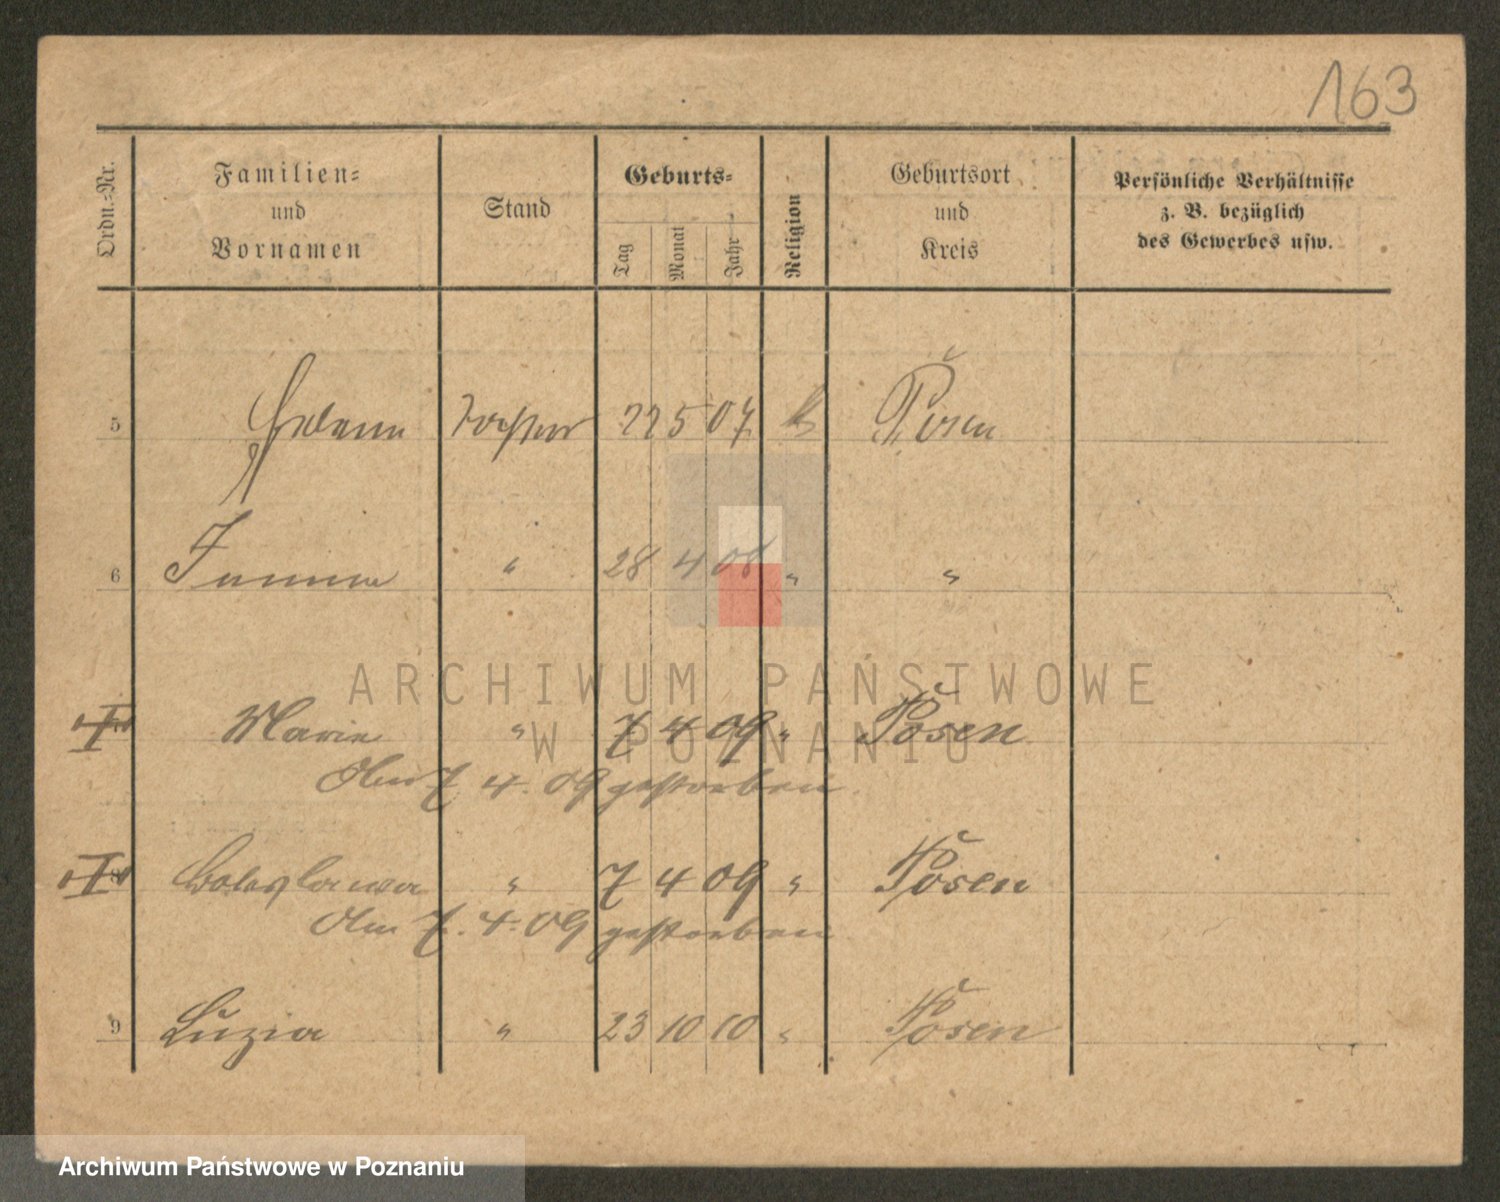 163
Ordn.-Nr.
Familien-
und
Vornamen
Stand
Geburts-
Tag
Monat
Jahr
Religion
Geburtsort
und
Kreis
Persönliche Verhältnisse
z. B. bezüglich
des Gewerbes usw.
5 Helene Tochter 22 5 07 k Posen
6 " 28 4 08 " "
Marie " 7 4 09 " Posen
Am 7. 4. 09 gestorben
Boleslawa " 7 4 09 " Posen
Am 7. 4. 09 gestorben
9 Luzia " 23 10 10 " Posen
ARCHIWUM PAŃSTWOWE
W POZNANIU
Archiwum Państwowe w Poznaniu